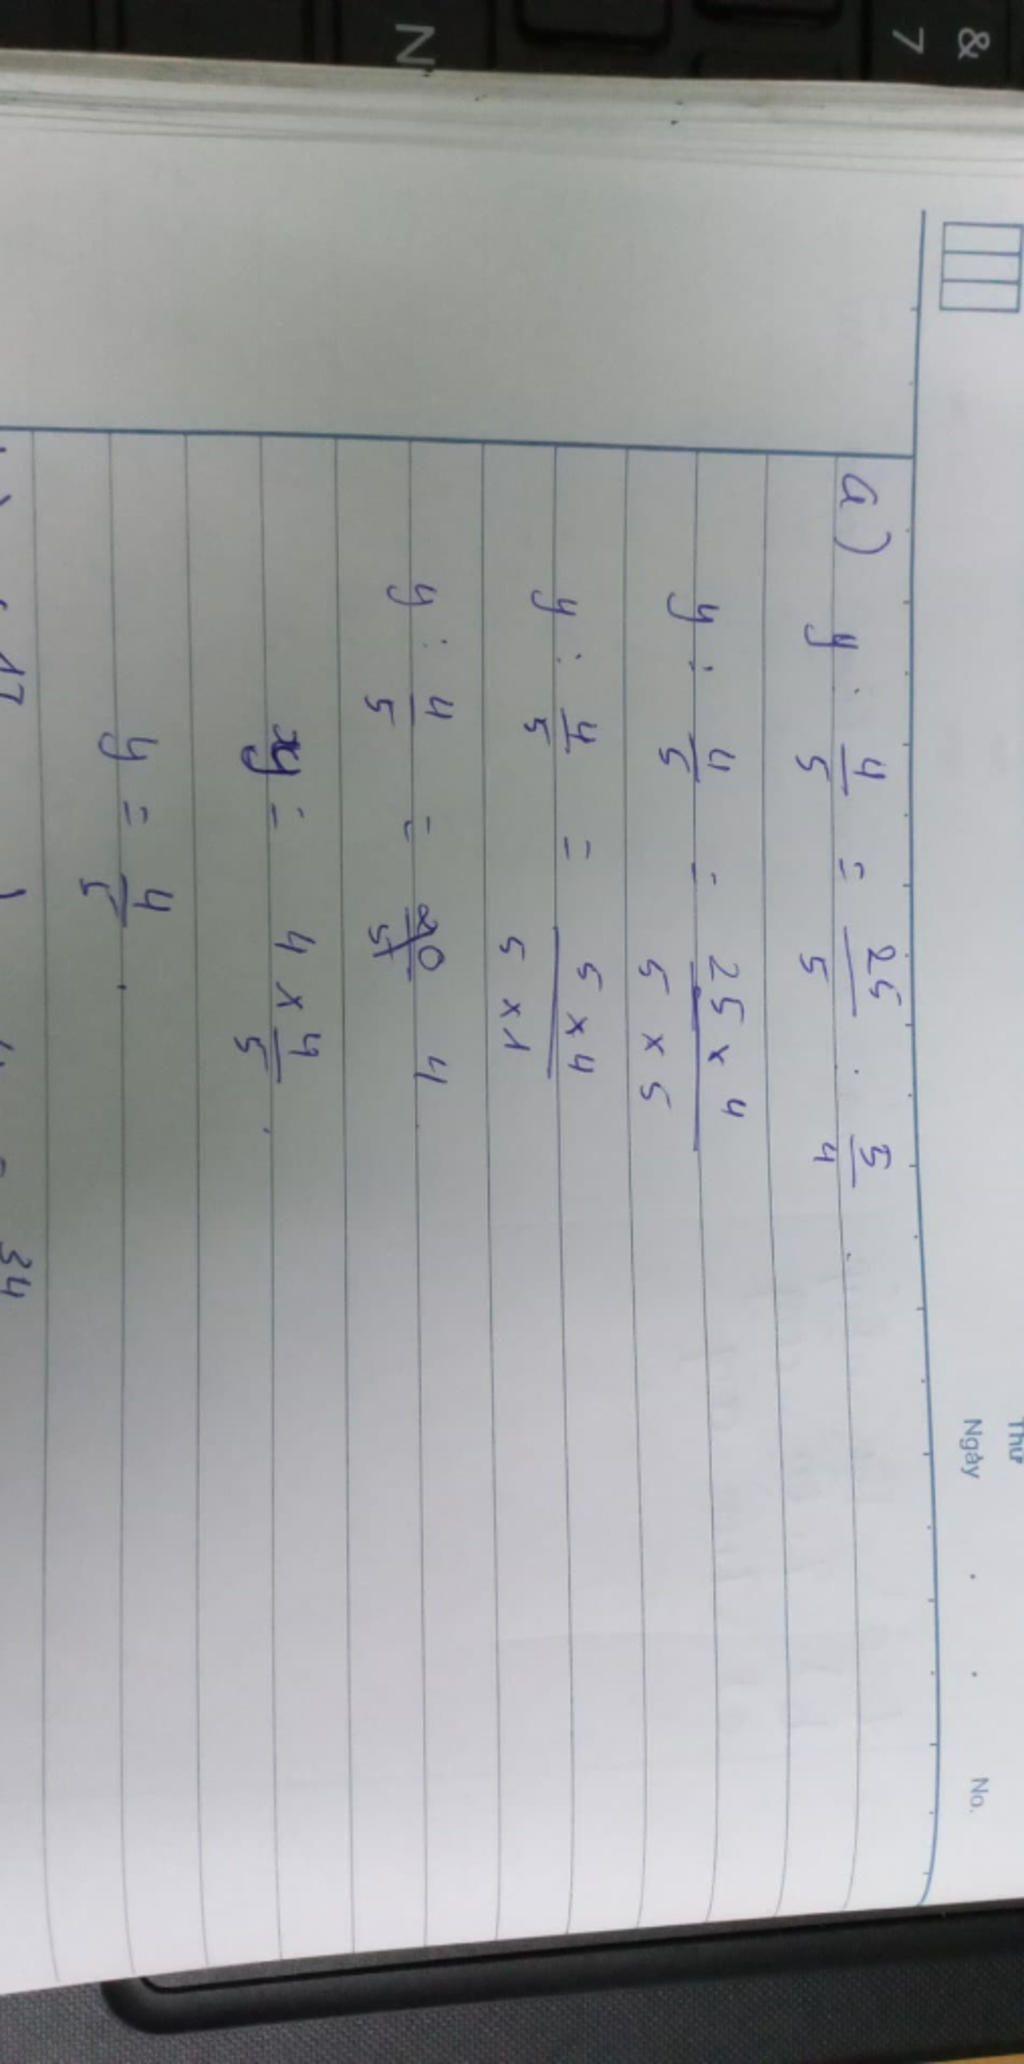 & 7
N
Thứ
Ngày . . No.
a) y : 4/5 = 25/5 : 5/4
y : 4/5 = 25 x 4 / 5 x 5
y : 4/5 = 5 x 4 / 5 x 1
y : 4/5 = 20/5 4
y = 4 x 4/5
y = 4/5
17 34